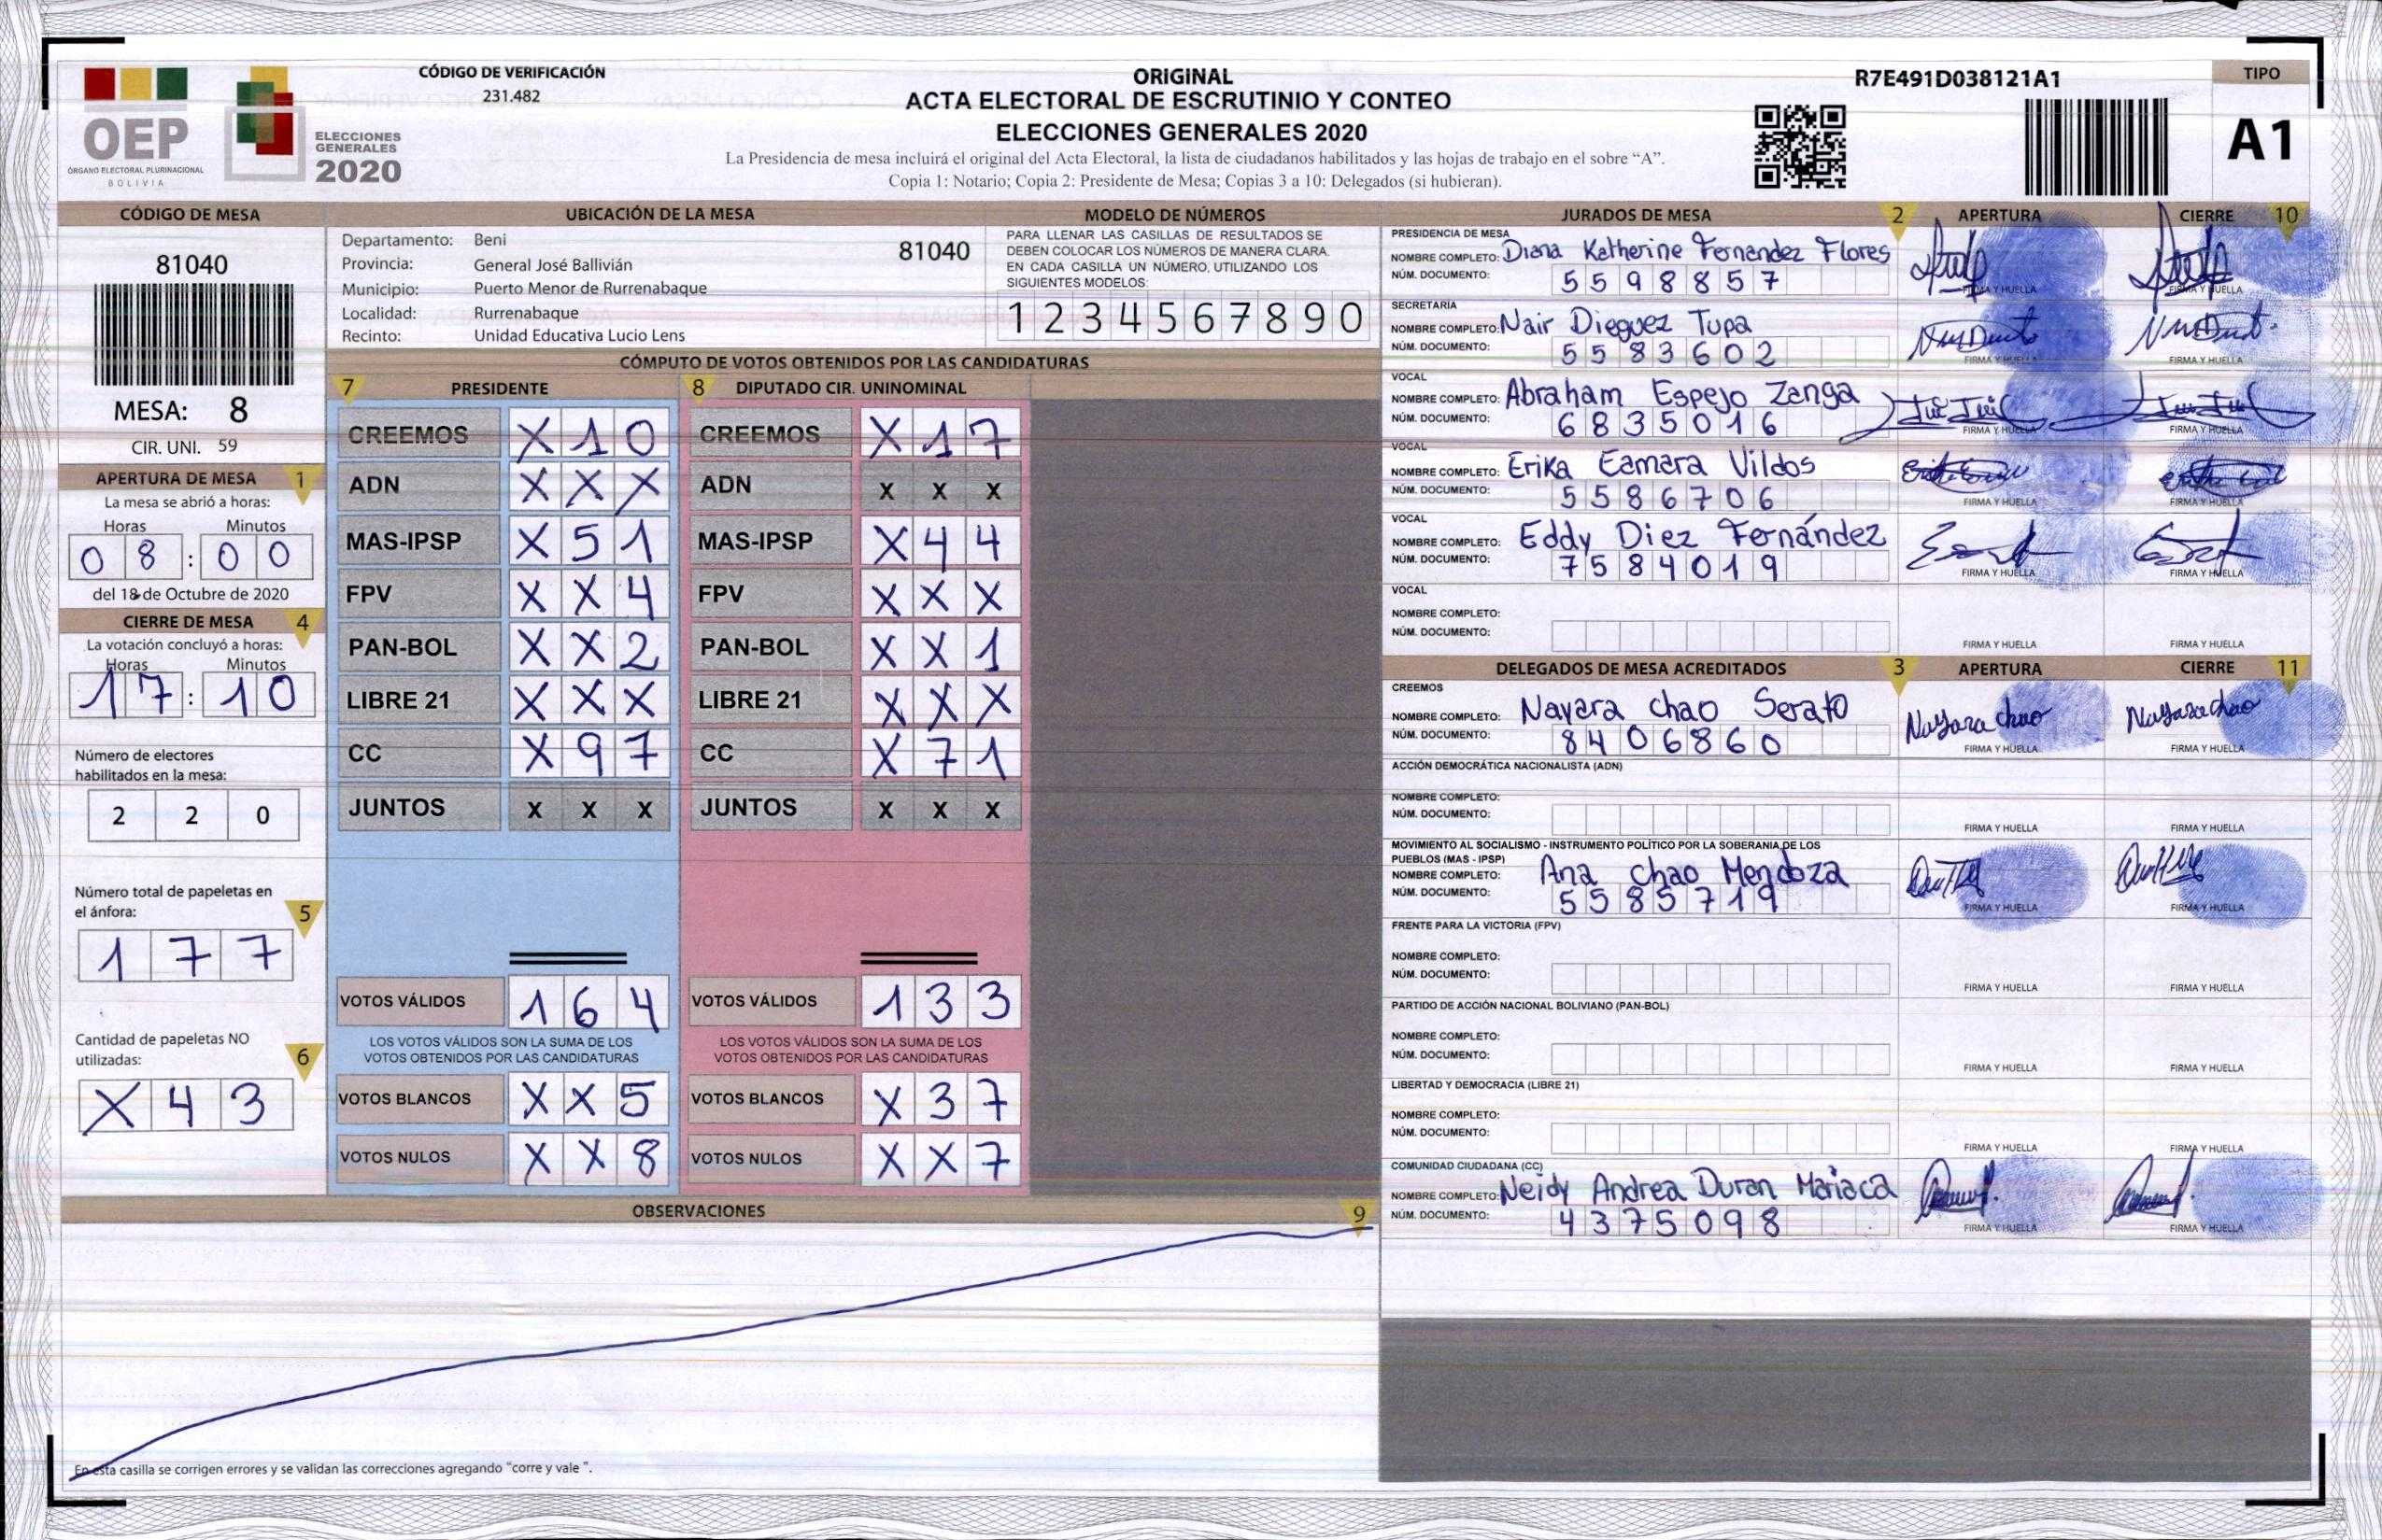 OEP
ÓRGANO ELECTORAL PLURINACIONAL
BOLIVIA
ELECCIONES
GENERALES
2020
CÓDIGO DE VERIFICACIÓN
231.482
ORIGINAL
ACTA ELECTORAL DE ESCRUTINIO Y CONTEO
ELECCIONES GENERALES 2020
La Presidencia de mesa incluirá el original del Acta Electoral, la lista de ciudadanos habilitados y las hojas de trabajo en el sobre “A”.
Copia 1: Notario; Copia 2: Presidente de Mesa; Copias 3 a 10: Delegados (si hubieran).
R7E491D038121A1
TIPO
A1
CÓDIGO DE MESA
81040
MESA: 8
CIR. UNI. 59
APERTURA DE MESA 1
La mesa se abrió a horas:
Horas Minutos
0 8 : 0 0
del 18 de Octubre de 2020
CIERRE DE MESA 4
La votación concluyó a horas:
Horas Minutos
1 7 : 1 0
Número de electores
habilitados en la mesa:
2 2 0
Número total de papeletas en
el ánfora: 5
1 7 7
Cantidad de papeletas NO
utilizadas: 6
X 4 3
UBICACIÓN DE LA MESA
Departamento: Beni 81040
Provincia: General José Ballivián
Municipio: Puerto Menor de Rurrenabaque
Localidad: Rurrenabaque
Recinto: Unidad Educativa Lucio Lens
MODELO DE NÚMEROS
PARA LLENAR LAS CASILLAS DE RESULTADOS SE
DEBEN COLOCAR LOS NÚMEROS DE MANERA CLARA.
EN CADA CASILLA UN NÚMERO, UTILIZANDO LOS
SIGUIENTES MODELOS:
1 2 3 4 5 6 7 8 9 0
CÓMPUTO DE VOTOS OBTENIDOS POR LAS CANDIDATURAS
7 PRESIDENTE 8 DIPUTADO CIR. UNINOMINAL
CREEMOS X 1 0 CREEMOS X 1 7
ADN X X X ADN X X X
MAS-IPSP X 5 1 MAS-IPSP X 4 4
FPV X X 4 FPV X X X
PAN-BOL X X 2 PAN-BOL X X 1
LIBRE 21 X X X LIBRE 21 X X X
CC X 9 7 CC X 7 1
JUNTOS X X X JUNTOS X X X
VOTOS VÁLIDOS 1 6 4 VOTOS VÁLIDOS 1 3 3
LOS VOTOS VÁLIDOS SON LA SUMA DE LOS LOS VOTOS VÁLIDOS SON LA SUMA DE LOS
VOTOS OBTENIDOS POR LAS CANDIDATURAS VOTOS OBTENIDOS POR LAS CANDIDATURAS
VOTOS BLANCOS X X 5 VOTOS BLANCOS X 3 7
VOTOS NULOS X X 8 VOTOS NULOS X X 7
OBSERVACIONES 9
En esta casilla se corrigen errores y se validan las correcciones agregando “corre y vale ”.
JURADOS DE MESA 2 APERTURA CIERRE 10
PRESIDENCIA DE MESA
NOMBRE COMPLETO: Diana Katherine Fernandez Flores
NÚM. DOCUMENTO: 5 5 9 8 8 5 7 FIRMA Y HUELLA FIRMA Y HUELLA
SECRETARIA
NOMBRE COMPLETO: Nair Dieguez Tupa
NÚM. DOCUMENTO: 5 5 8 3 6 0 2 FIRMA Y HUELLA FIRMA Y HUELLA
VOCAL
NOMBRE COMPLETO: Abraham Espejo Zanga
NÚM. DOCUMENTO: 6 8 3 5 0 1 6 FIRMA Y HUELLA FIRMA Y HUELLA
VOCAL
NOMBRE COMPLETO: Erika Eamara Vildos
NÚM. DOCUMENTO: 5 5 8 6 7 0 6 FIRMA Y HUELLA FIRMA Y HUELLA
VOCAL
NOMBRE COMPLETO: Eddy Diez Fernández
NÚM. DOCUMENTO: 7 5 8 4 0 1 9 FIRMA Y HUELLA FIRMA Y HUELLA
VOCAL
NOMBRE COMPLETO:
NÚM. DOCUMENTO: FIRMA Y HUELLA FIRMA Y HUELLA
DELEGADOS DE MESA ACREDITADOS 3 APERTURA CIERRE 11
CREEMOS
NOMBRE COMPLETO: Nayara chao Serato Nayara chao Nayara chao
NÚM. DOCUMENTO: 8 4 0 6 8 6 0 FIRMA Y HUELLA FIRMA Y HUELLA
ACCIÓN DEMOCRÁTICA NACIONALISTA (ADN)
NOMBRE COMPLETO:
NÚM. DOCUMENTO: FIRMA Y HUELLA FIRMA Y HUELLA
MOVIMIENTO AL SOCIALISMO - INSTRUMENTO POLÍTICO POR LA SOBERANIA DE LOS
PUEBLOS (MAS - IPSP)
NOMBRE COMPLETO: Ana chao Mendoza
NÚM. DOCUMENTO: 5 5 8 5 7 1 9 FIRMA Y HUELLA FIRMA Y HUELLA
FRENTE PARA LA VICTORIA (FPV)
NOMBRE COMPLETO:
NÚM. DOCUMENTO: FIRMA Y HUELLA FIRMA Y HUELLA
PARTIDO DE ACCIÓN NACIONAL BOLIVIANO (PAN-BOL)
NOMBRE COMPLETO:
NÚM. DOCUMENTO: FIRMA Y HUELLA FIRMA Y HUELLA
LIBERTAD Y DEMOCRACIA (LIBRE 21)
NOMBRE COMPLETO:
NÚM. DOCUMENTO: FIRMA Y HUELLA FIRMA Y HUELLA
COMUNIDAD CIUDADANA (CC)
NOMBRE COMPLETO: Neidy Andrea Duran Mariaca
NÚM. DOCUMENTO: 4 3 7 5 0 9 8 FIRMA Y HUELLA FIRMA Y HUELLA